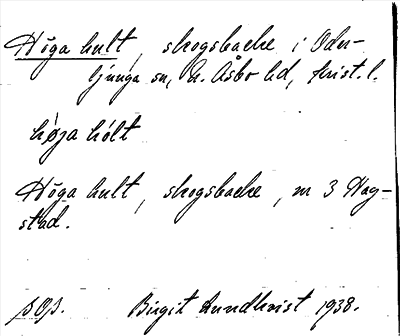 Höga hult, skogsbacke i Oder-
ljunga sn, N. Åsbo hd, Krist. l.
höga hólt
Höga hult, skogsbacke, nr 3 Hag-
stad.
Birgit Lundkvist 1938.